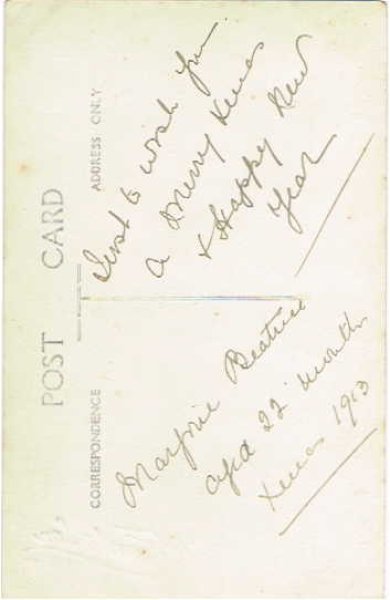 POST CARD
CORRESPONDENCE
ADDRESS ONLY
Just to wish you
a Merry Xmas
& Happy New
Year
Marjorie Beatrice
aged 22 months
Xmas 1913